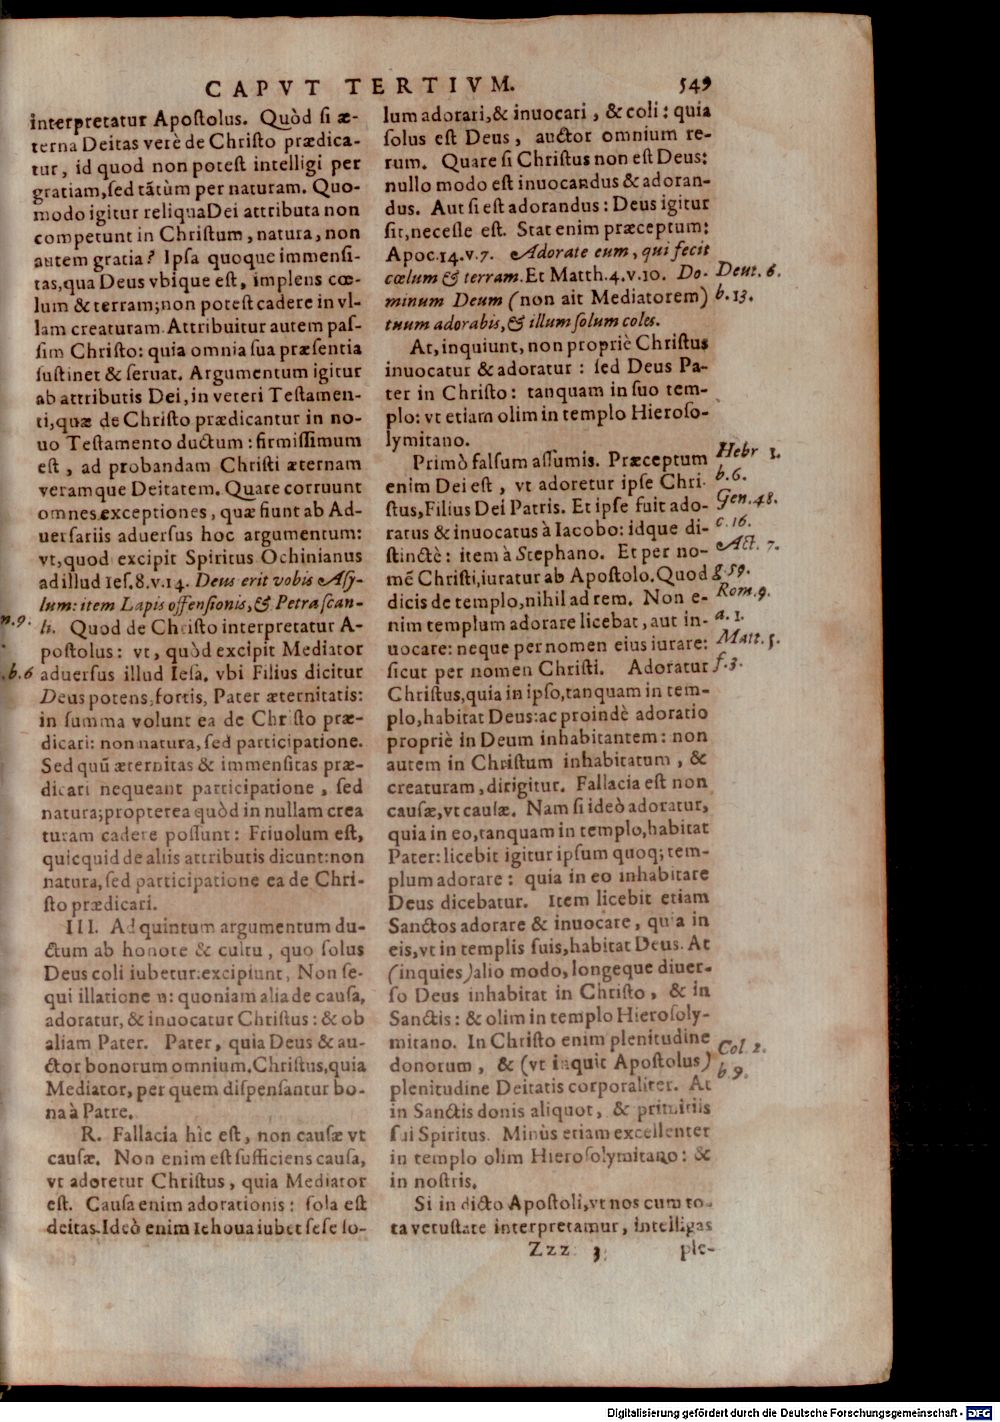 CAPVT TERTIVM. 549
interpretatur Apoſtolus. Quòd ſi æ-
terna Deitas verè de Chriſto prædica-
tur, id quod non poteſt intelligi per
gratiam, ſed tãtùm per naturam. Quo-
modo igitur reliqua Dei attributa non
competunt in Chriſtum, natura, non
autem gratia? Ipſa quoque immenſi-
tas, qua Deus vbique eſt, implens cœ-
lum & terram; non poteſt cadere in vl-
lam creaturam. Attribuitur autem paſ-
ſim Chriſto: quia omnia ſua præſentia
ſuſtinet & ſeruat. Argumentum igitur
ab attributis Dei, in veteri Teſtamen-
ti, quæ de Chriſto prædicantur in no-
uo Teſtamento ductum: firmiſſimum
eſt, ad probandam Chriſti æternam
veramque Deitatem. Quare corruunt
omnes exceptiones, quæ fiunt ab Ad-
uerſariis aduerſus hoc argumentum:
vt, quod excipit Spiritus Ochinianus
ad illud Ieſ. 8. v. 14. Deus erit vobis Aſy-
lum: item Lapis offenſionis, & Petra ſcan-
n. 9.
li. Quod de Chriſto interpretatur A-
poſtolus: vt, quòd excipit Mediator
.b.6
aduerſus illud Ieſa. vbi Filius dicitur
Deus potens, fortis, Pater æternitatis:
in ſumma volunt ea de Chriſto præ-
dicari: non natura, ſed participatione.
Sed quũ æternitas & immenſitas præ-
dicari nequeant participatione, ſed
natura; propterea quòd in nullam crea
turam cadere poſſunt: Friuolum eſt,
quicquid de aliis attributis dicunt: non
natura, ſed participatione ea de Chri-
ſto prædicari.
III. Ad quintum argumentum du-
ctum ab honore & cultu, quo ſolus
Deus coli iubetur: excipiunt, Non ſe-
qui illatione n: quoniam alia de cauſa,
adoratur, & inuocatur Chriſtus: & ob
aliam Pater. Pater, quia Deus & au-
ctor bonorum omnium, Chriſtus, quia
Mediator, per quem diſpenſantur bo-
na à Patre.
R. Fallacia hîc eſt, non cauſæ vt
cauſæ. Non enim eſt ſufficiens cauſa,
vt adoretur Chriſtus, quia Mediator
eſt. Cauſa enim adorationis: ſola eſt
deitas. Ideò enim Iehoua iubet ſeſe ſo-
lum adorari, & inuocari, & coli: quia
ſolus eſt Deus, auctor omnium re-
rum. Quare ſi Chriſtus non eſt Deus:
nullo modo eſt inuocandus & adoran-
dus. Aut ſi eſt adorandus: Deus igitur
ſit, neceſſe eſt. Stat enim præceptum:
Apoc. 14. v. 7. Adorate eum, qui fecit
cœlum & terram. Et Matth. 4. v. 10. Do-
Deut. 6.
minum Deum (non ait Mediatorem)
b. 13.
tuum adorabis, & illum ſolum coles.
At, inquiunt, non propriè Chriſtus
inuocatur & adoratur: ſed Deus Pa-
ter in Chriſto: tanquam in ſuo tem-
plo: vt etiam olim in templo Hieroſo-
lymitano.
Primò falſum aſſumis. Præceptum
Hebr 1.
enim Dei eſt, vt adoretur ipſe Chri-
b. 6.
ſtus, Filius Dei Patris. Et ipſe fuit ado-
Gen. 48.
ratus & inuocatus à Iacobo: idque di-
c. 16.
ſtinctè: item à Stephano. Et per no-
Act. 7.
mẽ Chriſti, iuratur ab Apoſtolo. Quod
g. 59.
dicis de templo, nihil ad rem. Non e-
Rom. 9.
nim templum adorare licebat, aut in-
a. 1.
uocare: neque per nomen eius iurare:
Matt. 5.
ſicut per nomen Chriſti. Adoratur
f. 3.
Chriſtus, quia in ipſo, tanquam in tem-
plo, habitat Deus: ac proindè adoratio
propriè in Deum inhabitantem: non
autem in Chriſtum inhabitatum, &
creaturam, dirigitur. Fallacia eſt non
cauſæ, vt cauſæ. Nam ſi ideò adoratur,
quia in eo, tanquam in templo, habitat
Pater: licebit igitur ipſum quoq; tem-
plum adorare: quia in eo inhabitare
Deus dicebatur. Item licebit etiam
Sanctos adorare & inuocare, quia in
eis, vt in templis ſuis, habitat Deus. At
(inquies) alio modo, longeque diuer-
ſo Deus inhabitat in Chriſto, & in
Sanctis: & olim in templo Hieroſoly-
mitano. In Chriſto enim plenitudine
Col 2.
donorum, & (vt inquit Apoſtolus)
b 9.
plenitudine Deitatis corporaliter. At
in Sanctis donis aliquot, & primitiis
ſui Spiritus. Minùs etiam excellenter
in templo olim Hieroſolymitano: &
in noſtris.
Si in dicto Apoſtoli, vt nos cum to-
ta vetuſtate interpretamur, intelligas
Zzz 3 ple-
Digitalisierung gefördert durch die Deutsche Forschungsgemeinschaft - DFG